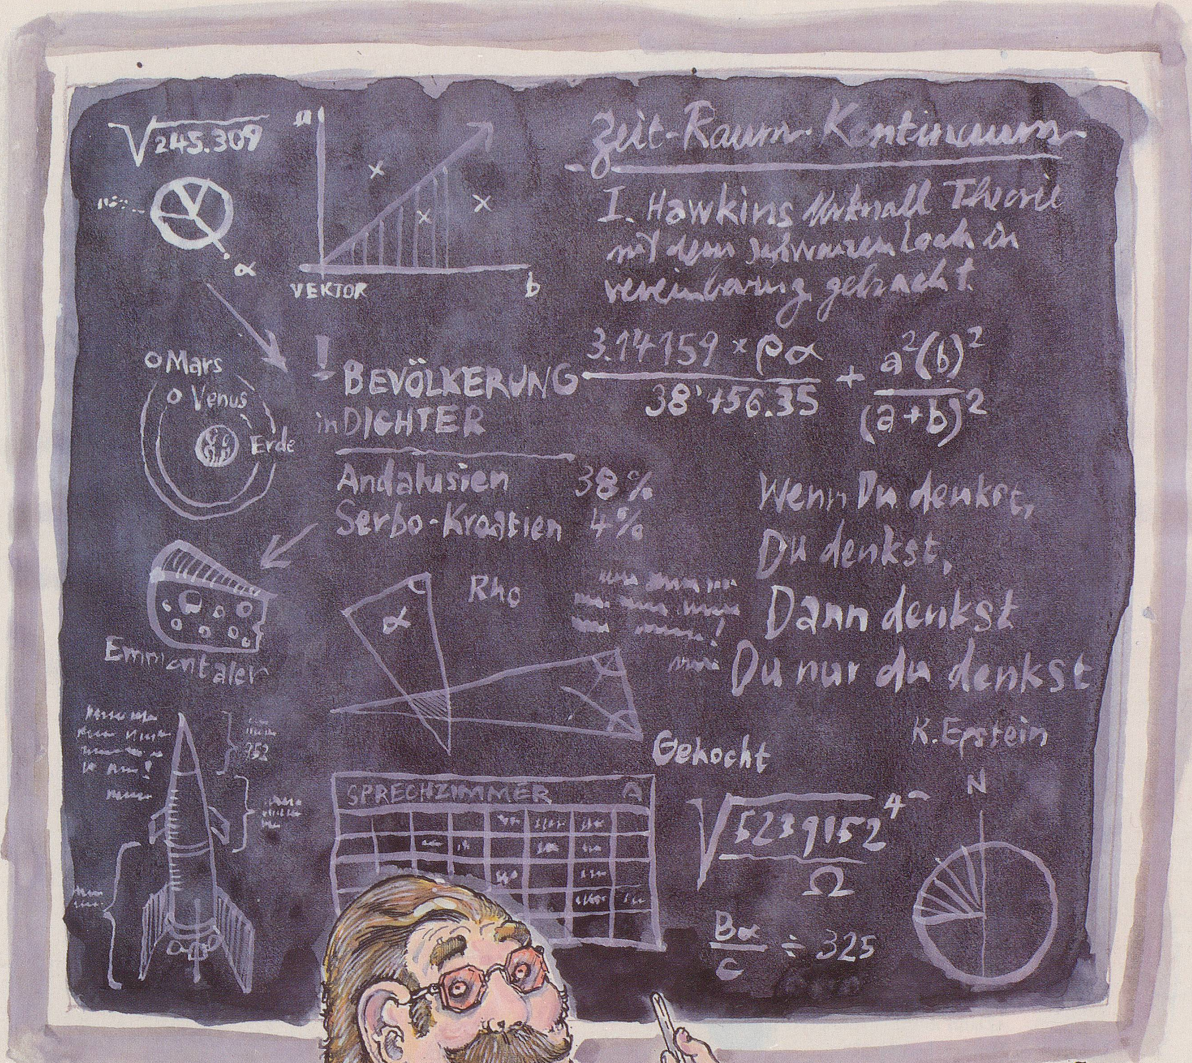 √245.309
α
a
VEKTOR
b
Zeit-Raum-Kontinuum
I. Hawkins Urknall Theorie
mit dem schwarzen Loch in
vereinbarung gebracht
3.14159 × ρα
38'456.35
+
a²(b)²
(a+b)²
Mars
Venus
Erde
!
BEVÖLKERUNG
in DICHTER
Andalusien 38%
Serbo-Kroatien 4%
Wenn Du denkst,
Du denkst,
Dann denkst
Du nur du denkst
K.Epstein
Emmentaler
α
Rho
!
!
952
Gekocht
SPRECHZIMMER A
√5239152
4
Ω
Bα
c
÷ 325
N